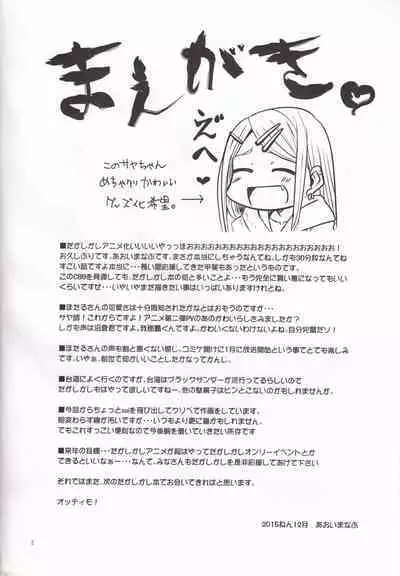 まえがき。
えへ
このサヤちゃん
めちゃクソかわいい
グッズ化希望。
■だがしかしアニメ化いいいいやっっほおおおおおおおおおおおおおおおおおおおおおお！
お久しぶりです。あおいまなぶです。まさか本当にしちゃうなんてね。しかも30分枠なんてね。
すごい話ですよ本当に…長い間応援してきた甲斐もあったというものです。
このC89を見渡しても、だがしかし本の低と多いことよ…もう完全に買い専になってもいい
くらいですせ…いやいやまだ描きたい事はいっぱいありますけれどね。
■ほたるさんの可愛さは十分周知されたかなとはおもうのですが…
サヤ師！これからですよ！アニメ第二弾PVのあのかわいらしさみましたか？
しかも声は沼倉君ですよ。我那覇くんですよ。かわいくないわけないよね。自分完璧だゾ！
■ほたるさんの声も割と悪くない感じ。コミケ開けに1月に放送開始という事でとても楽しみ
です。いやぁ、前世で何かいいことしたかなってかんじ。
■台湾によく行くのですが、台湾はブラックサンダーが流行ってるらしいので
だがしかしもはやってほしいですねー、他の駄菓子はピンとこないのかもしれませんが。
■今回からちょっとsaiを飛び出してクリペで作画をしています。
相変わらず線が汚いですが…いつもより更に雑かもしれません。
でもこれすっごい便利なので今後腕を磨いていきたい所存です
■来年の目標…だがしかしアニメが始はやってだがしかしオンリーイベントとか
できるといいなぁー…なんて、みなさんもだがしかしを是非応援してあげて下さい
それではまた、次のだがしかし本でお会いできればと思います。
オッティモ！
2015ねん12月　あおいまなぶ